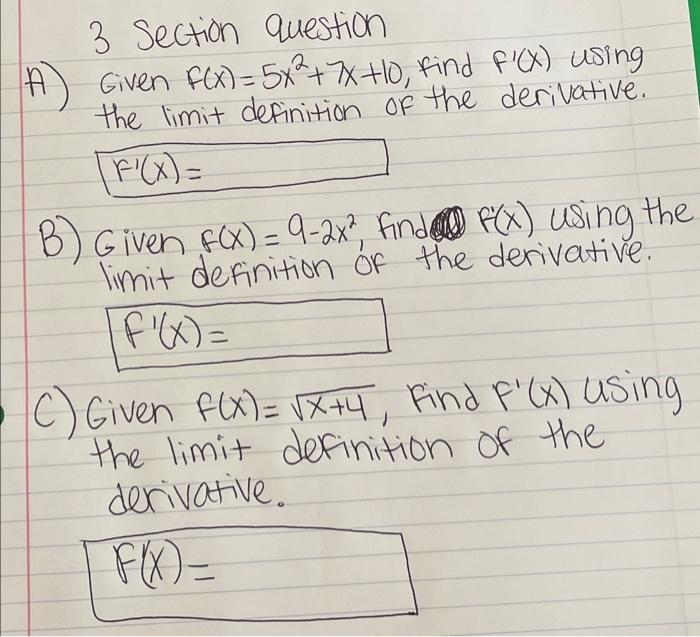 3 Section question
A) Given f(x) = 5x²+7x+10, find f'(x) using
the limit definition of the derivative.
F'(x) =
B) Given f(x) = 9-2x², find f'(x) using the
limit definition of the derivative.
f'(x) =
C) Given f(x) = √x+4, Find f'(x) using
the limit definition of the
derivative.
f'(x) =